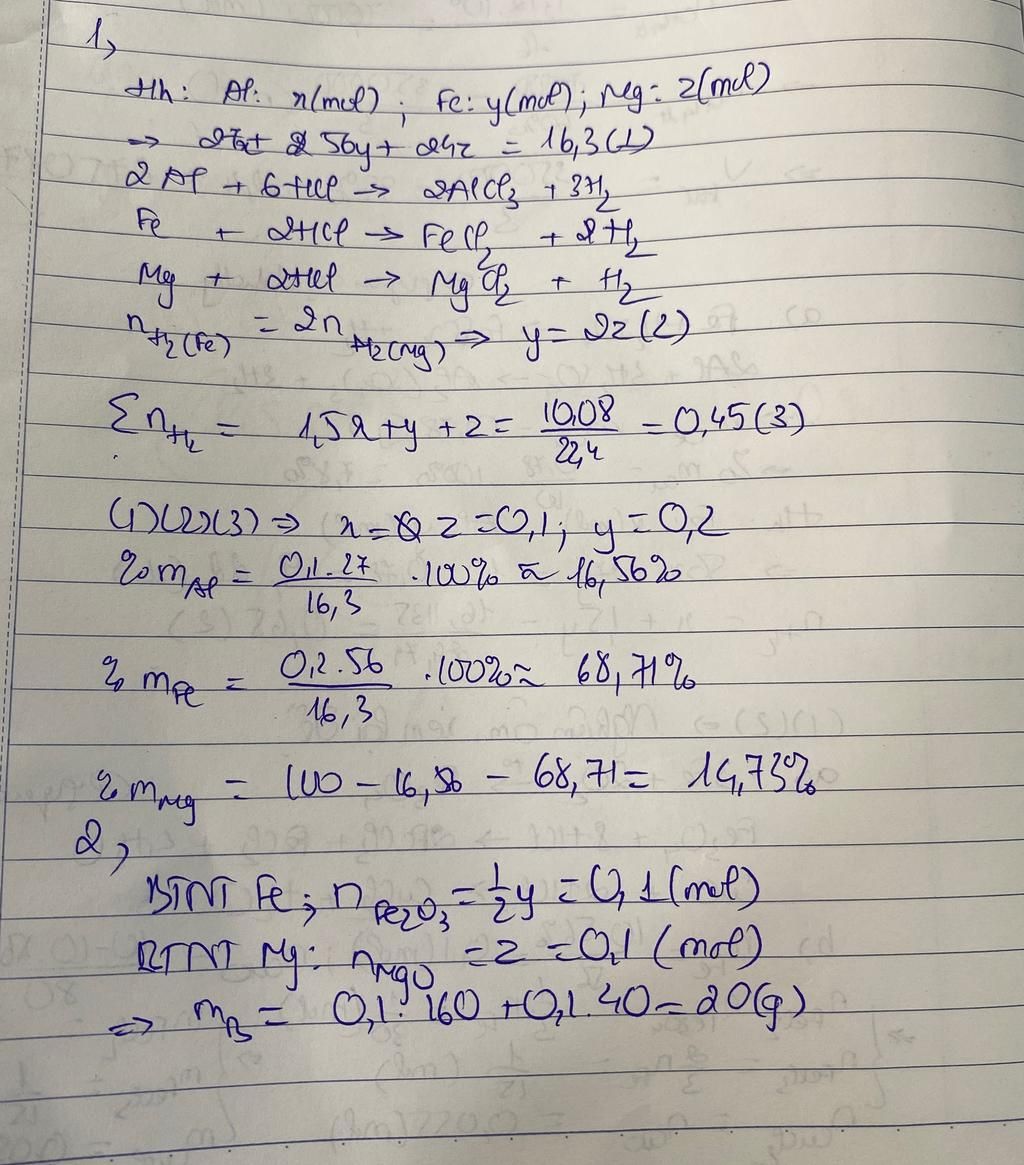 1,
Hh: Al: x(mol); Fe: y(mol); Mg: z(mol)
=> 27x + 56y + 24z = 16,3 (1)
2Al + 6HCl → 2AlCl₃ + 3H₂
Fe + 2HCl → FeCl₂ + 2H₂
Mg + 2HCl → MgCl₂ + H₂
n_H₂(Fe) = 2n_H₂(Mg) => y = 2z (2)
Σn_H₂ = 1,5x + y + z = 10,08/22,4 = 0,45 (3)
(1)(2)(3) => x = z = 0,1; y = 0,2
%m_Al = 0,1.27/16,3 .100% ≈ 16,56%
%m_Fe = 0,2.56/16,3 .100% ≈ 68,71%
%m_Mg = 100 - 16,56 - 68,71 = 14,73%
2,
BTNT Fe: n_Fe₂O₃ = 1/2 y = 0,1 (mol)
BTNT Mg: n_MgO = z = 0,1 (mol)
=> m_B = 0,1.160 + 0,1.40 = 20(g)